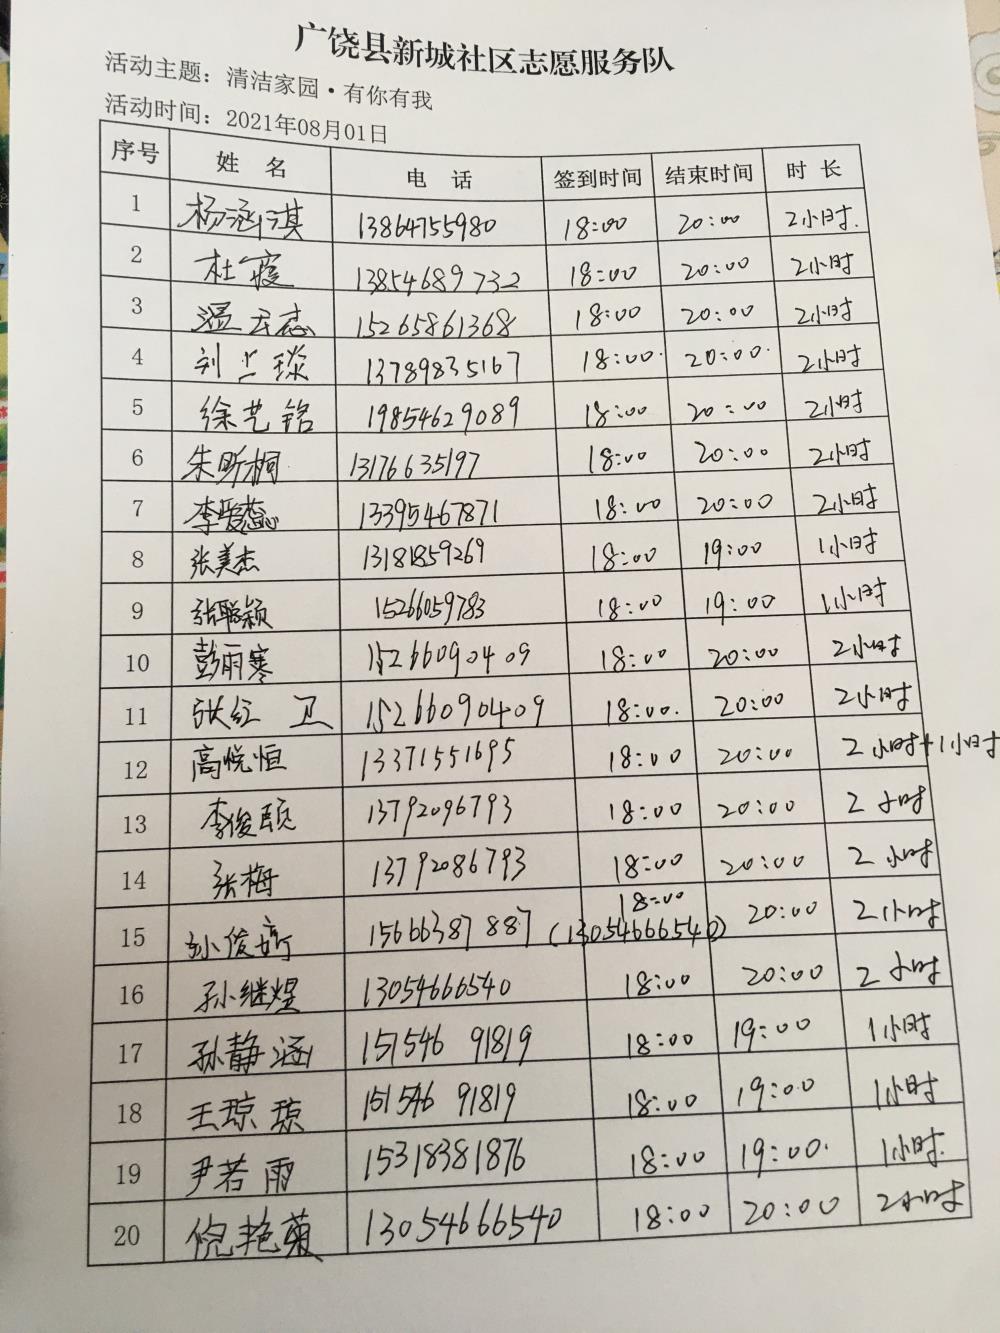 广饶县新城社区志愿服务队
活动主题：清洁家园·有你有我
活动时间：2021年08月01日
序号 姓 名 电 话 签到时间 结束时间 时 长
1 杨涵淇 13864755980 18:00 20:00 2小时.
2 杜 13854689732 18:00 20:00 2小时
3 温云志 15265861368 18:00 20:00 2小时
4 刘 琰 13789835167 18:00. 20:00. 2小时
5 徐艺铭 19854629089 18:00 20:00 2小时
6 朱昕桐 13176635197 18:00 20:00 2小时
7 李爱蕊 13395467871 18:00 20:00 2小时
8 张美杰 13181859269 18:00 19:00 1小时
9 张聪颖 15266059783 18:00 19:00 1小时
10 彭雨寒 15266090409 18:00 20:00 2小时
11 张红卫 15266090409 18:00. 20:00 2小时
12 高悦恒 13371551695 18:00 20:00 2小时+1小时
13 李俊颐 13792096793 18:00 20:00 2小时
14 张梅 13792086793 18:00 20:00 2小时
15 孙俊 15666387887 (13054666540) 18:00 20:00 2小时
16 孙继煜 13054666540 18:00 20:00 2小时
17 孙静涵 151546 91819 18:00 19:00 1小时
18 王琼琼 151546 91819 18:00 19:00 1小时
19 尹若雨 15318381876 18:00 19:00. 1小时.
20 倪艳菊 13054666540 18:00 20:00 2小时